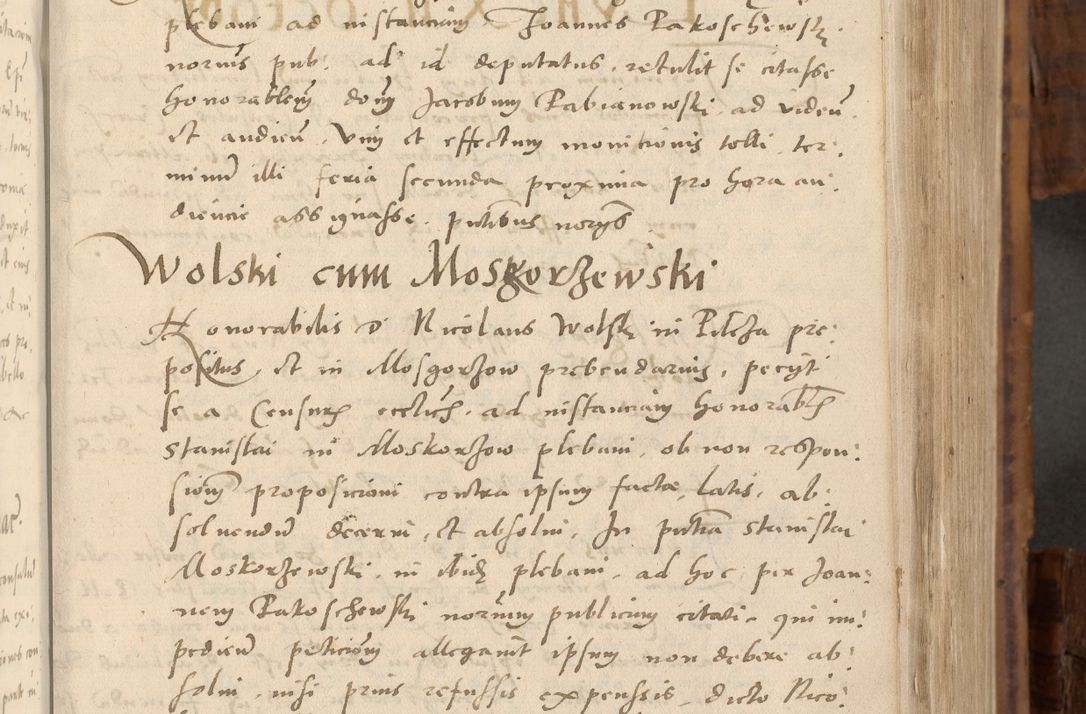 plebani ad instanciam Joannes Rakoschewskj.
notarius pub: ad id deputatus, retulit se citasse
honorablem dom Jacobum Rabianowski, ad viden.
et audien. Vim et effectum monitionis tolli, ter:
minum illi feria secunda proxima pro hora au:
diencie assignasse. pntibus notarys.
Wolski cum Moskorzewski
Honorabilis d Nicolaus Wolskj in Pilcza pre:
positus, et in Mosgorzow prebendarius, pecyt
se a Censurs ecclich, ad instanciam honorablis
Stanislai in Moskorzow plebani, ob non respon:
siom proposicioni contra ipsum facte, latis, ab:
soluendum decerni, et absolui, In pntia Stanislai
Moskorzewski, in ibid plebani, ad hoc per Joan:
nem Rakoschewski notarium publicum citati, qui im:
pedien peticiom allegauit ipsum non debere ab:
solui, nisi prius refussis expenssis, dicto Nico: